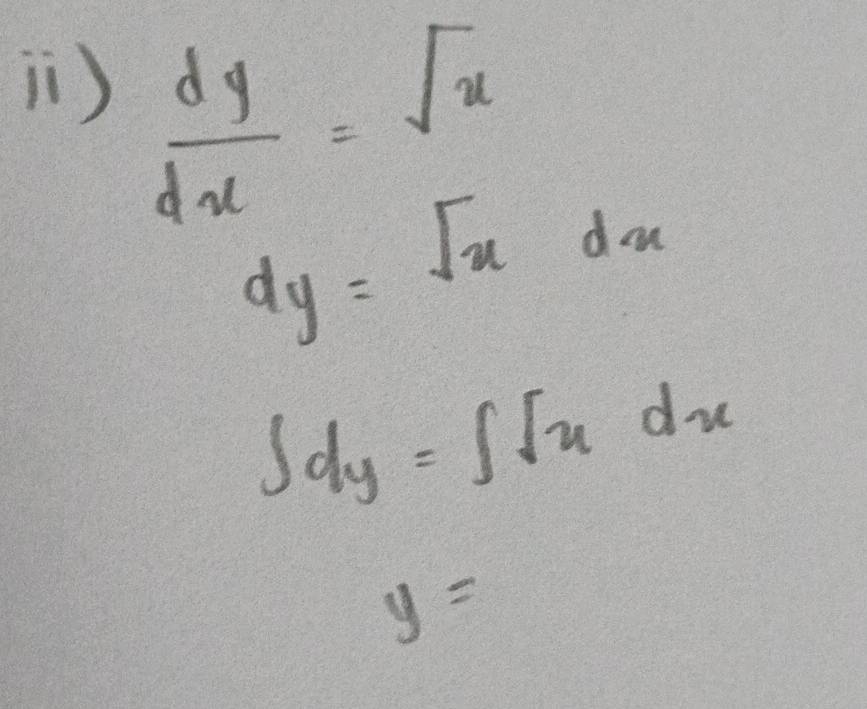 ii) dy/dx = √x
dy = √x dx
∫dy = ∫√x dx
y =